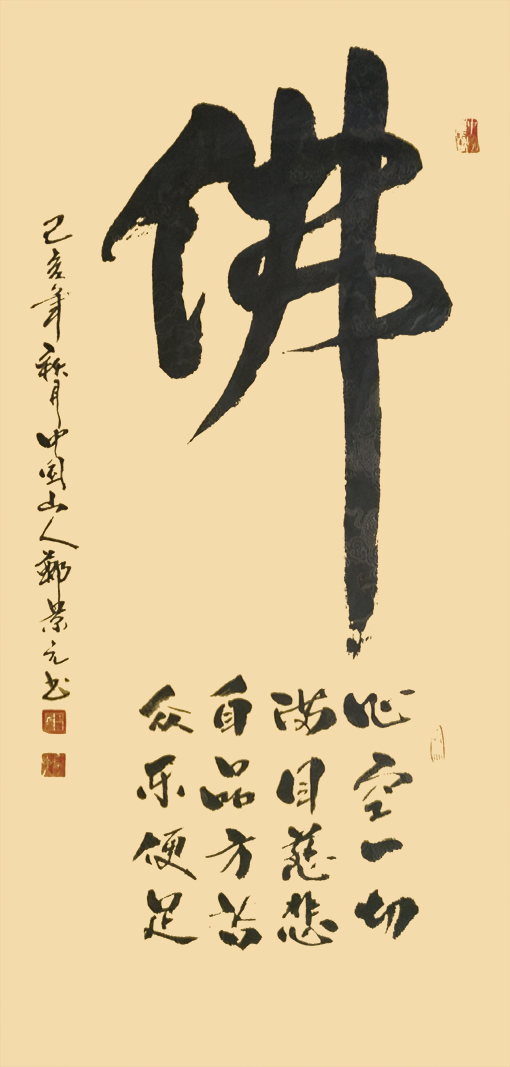 佛
心空一切
满目慈悲
自品方苦
众乐便足
己亥年秋月中国山人鄭景元书